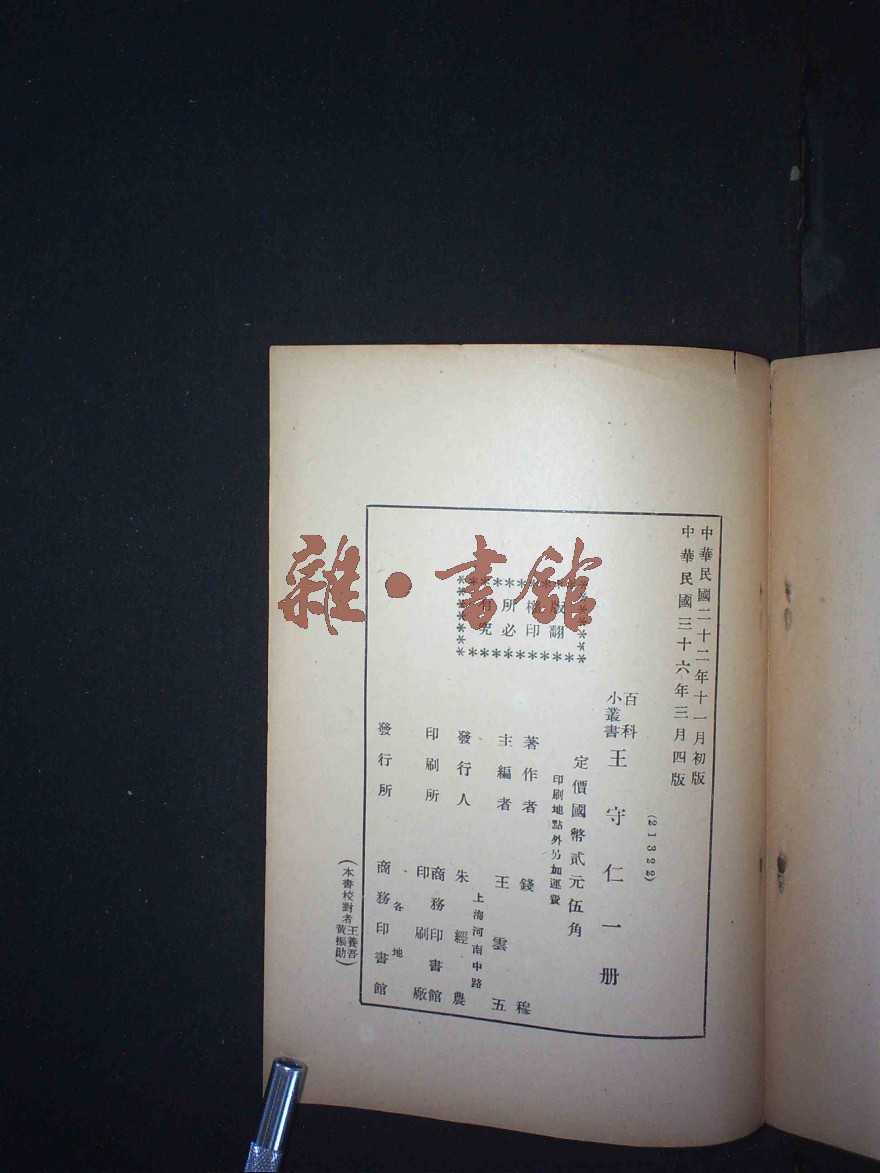 中華民國二十二年十一月初版
中華民國三十六年三月四版
(21322)
百科
小叢書
王守仁一册
定價國幣貳元伍角
印刷地點外另加運費
版權所有
翻印必究
著作者 錢穆
主編者 王雲五
上海河南中路
發行人 朱經農
印刷所 商務印書館
印刷廠
發行所 各地
商務印書館
(本書校對者王養吾
黃振勛)
雜·書館